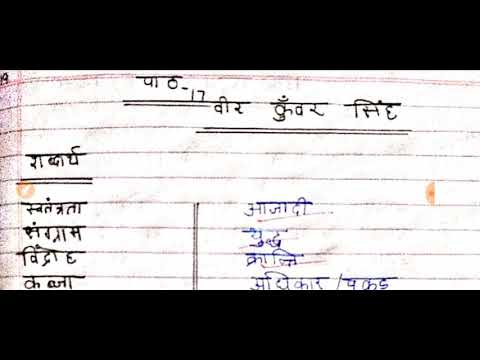 19
पाठ-17
वीर कुँवर सिंह
शब्दार्थ
स्वतंत्रता आजादी
संग्राम युद्ध
विद्रोह क्रान्ति
कब्जा अधिकार / पकड़